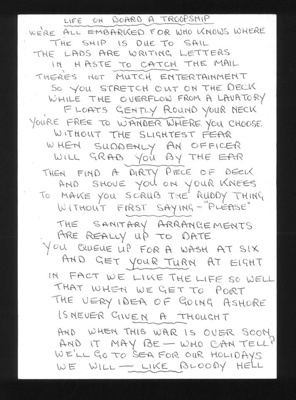 LIFE ON BOARD A TROOPSHIP
WERE ALL EMBARKED FOR WHO KNOWS WHERE
THE SHIP IS DUE TO SAIL
THE LADS ARE WRITING LETTERS
IN HASTE TO CATCH THE MAIL
THERE'S NOT MUTCH ENTERTAINMENT
SO YOU STRETCH OUT ON THE DECK
WHILE THE OVERFLOW FROM A LAVATORY
FLOATS GENTLY ROUND YOUR NECK
YOU'RE FREE TO WANDER WHERE YOU CHOOSE
WITHOUT THE SLIGHTEST FEAR
WHEN SUDDENLY AN OFFICER
WILL GRAB YOU BY THE EAR
THEN FIND A DIRTY PIECE OF DECK
AND SHOVE YOU ON YOUR KNEES
TO MAKE YOU SCRUB THE RUDDY THING
WITHOUT FIRST SAYING - "PLEASE"
THE SANITARY ARRANGEMENTS
ARE REALLY UP TO DATE
YOU QUEUE UP FOR A WASH AT SIX
AND GET YOUR TURN AT EIGHT
IN FACT WE LIKE THE LIFE SO WELL
THAT WHEN WE GET TO PORT
THE VERY IDEA OF GOING ASHORE
IS NEVER GIVEN A THOUGHT
AND WHEN THIS WAR IS OVER SOON
AND IT MAY BE - WHO CAN TELL?
WE'LL GO TO SEA FOR OUR HOLIDAYS
WE WILL - LIKE BLOODY HELL